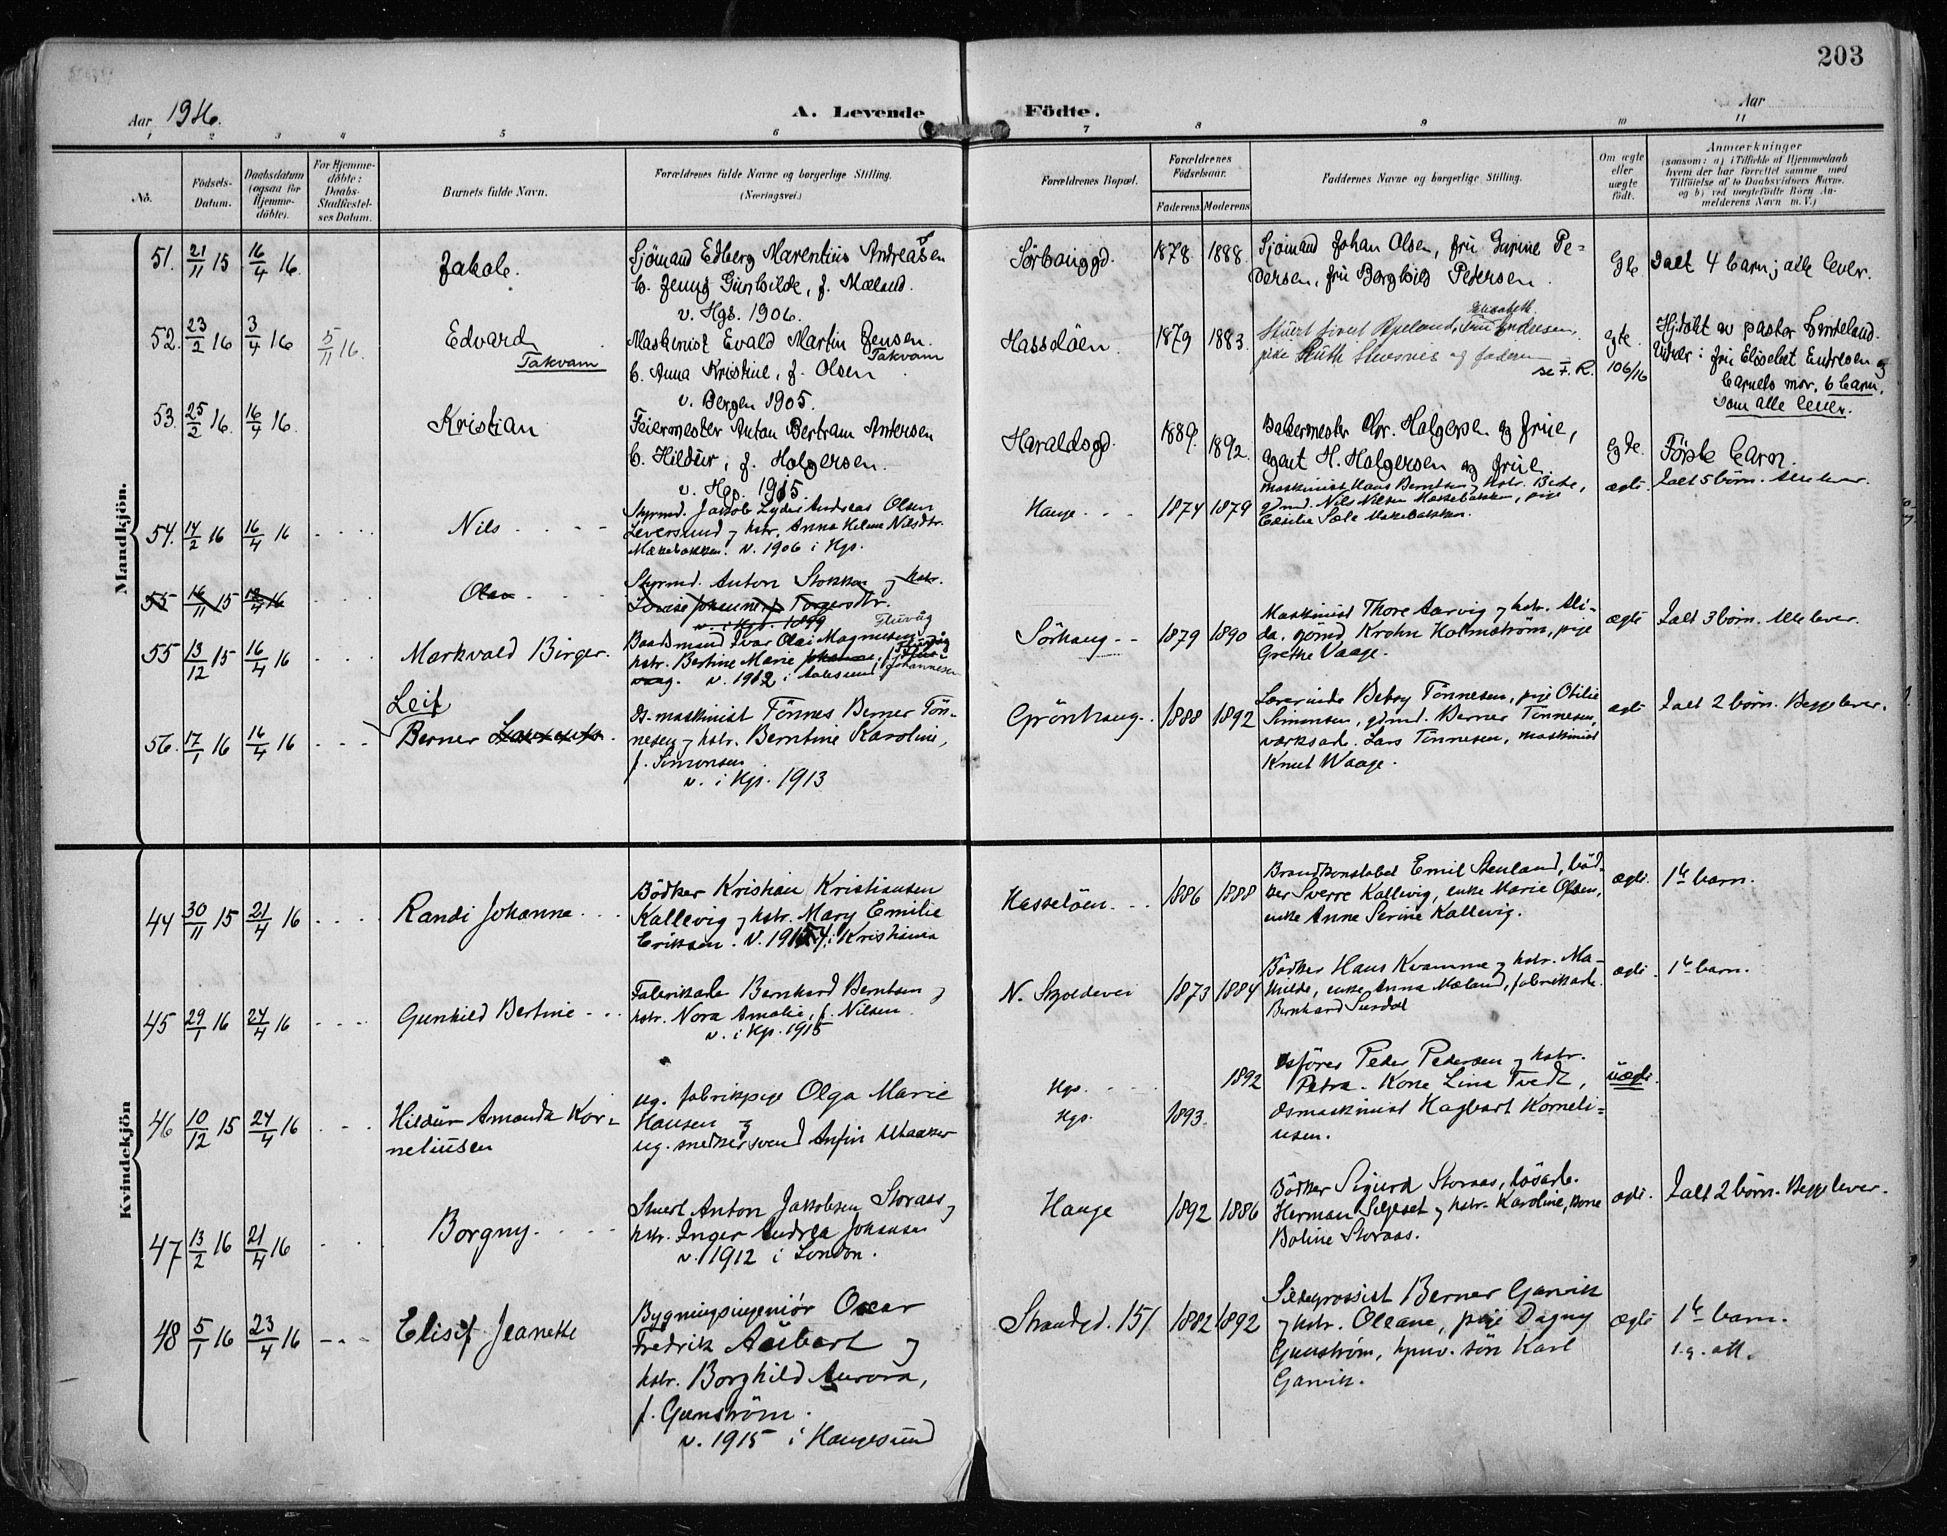 203
Aar 1916.
A. Levende Födte.
Aar
1 2 3 4 5 6 7 8 9 10 11
No.
Födsels-
Datum.
Daabsdatum
(ogsaa for
Hjemme-
döbte).
For Hjemme-
döbte:
Daabs-
Stadfæstel-
ses Datum.
Barnets fulde Navn.
Forældrenes fulde Navne og borgerlige Stilling.
(Næringsvei.)
Forældrenes Bopæl.
Forældrenes
Födselsaar.
Faderens. Moderens
Faddernes Navne og borgerlige Stilling.
Om ægte
eller
uægte
födt.
Anmærkninger
(saasom: a) i Tilfælde af Hjemmedaab
hvem der har forrettet samme med
Tilföielse af to Daabsvidners Navne.
og b) ved uægtefödte Börn An-
melderens Navn m. V.)
Mandkjön.
51. 21/11 15 16/4 16.
Jakob.
Sjömand Edberg Marentius Andreasen
& Jenny Gunhilde, f. Mæland.
v. Hgs. 1906.
Sörhauggd.
1878. 1888.
Sjömand Johan Olsen, fru Gurine Pe-
dersen, fru Borghild Pedersen.
Egte
Ialt 4 barn; alle lever.
52. 23/2 16 3/4 16 5/11 16.
Edvard
Takvam
Maskinist Evald Martin Jensen
Takvam
& Anna Kristine, f. Olsen
v. Bergen 1905.
Hasselöen.
1879 1883.
Elisabeth
Stuert Sivert Opeland, fru Endresen,
pike Ruth Stuernes og faderen
se F. R.
egte.
106/16
Hjdöbt av pastor Lindeland.
Vidner: fru Elisabet Endresen og
barnets mor. 6 barn,
som alle lever.
53. 25/2 16. 16/4 16.
Kristian
Feiermester Anton Bertram Antersen
& Hildur, f. Holgersen.
v. Hgs. 1915
Haraldsgd.
1889. 1892.
Bakermester Chr. Holgersen og frue,
agent H. Holgersen og frue
Egte.
Förste barn.
54. 14/2 16 16/4 16
Nils
Styrmd. Jakob Lyder Andreas Olsen
Leversund og hstr. Anna Helene Nilsdtr.
Mækebakken. v. 1906 i Hgs.
Hauge
1874 1879
Maskinist Hans Berntsen og hstr. Beste,
gdmd. Nils Nilsen Mækebakken, pige
Cecilie Sæle Mækebakken.
ægte.
Ialt 5 börn. Alle lever.
55 16/11 15 12/4 16
Olav
Styrmd. Anton Stokka og hstr.
Lovise Johanne f. Torgersdtr.
v. i Hgs. 1899
55 13/12 15 16/4 16
Markvald Birger.
Fluvåg
Baadsmand Ivar Olai Magnusen
hstr. Bertine Marie Johanne, f.
vaag. v. 1912 i Aalesund Johannesen
Sörhaug
1879 1890
Maskinist Thore Aarvig og hstr. Ali-
da, gomd Krohn Holmström, pige
Grethe Vaage.
ægte
Ialt 3 börn. Alle lever.
56. 17/1 16 16/4 16
Leif
Berner
ds. maskinist Tönnes Berner Tön-
nesen og hstr. Berntine Karoline,
f. Simonsen
v. i Hgs. 1913
Grönhaug.
1888 1892
Lærerinde Betsy Tönnesen, pige Otilie
Simonsen, gdmd. Berner Tönnesen,
værksarb. Lars Tönnesen, maskinist
Knut Waage.
ægte
Ialt 2 börn. Begge lever.
Kvindekjön
44 30/11 15 21/4 16
Randi Johanne
Bödker Kristian Kristiansen
Kallevig og hstr. Mary Emilie
Eriksen. V. 1914 i Kristiania
Hasselöen.
1886 1888
Brandkonstabel Emil Stenland, böd-
ker Sverre Kallevig, enke Marie Olsen,
enke Anne Serine Kallevig.
ægte.
1ste barn.
45 29/1 16 24/4 16
Gunhild Bertine
Fabrikarb. Bernhard Berntsen og
hstr. Nora Amalie, f. Nilsen.
v. i Hgs. 1915
N. Skjoldevei
1873 1884
Bödker Hans Kvamme og hstr. Ma-
thilde, enke Anna Mæland, fabrikarb.
Bernhard Surdal
ægte.
1ste barn.
46 10/12 15 24/4 16
Hildur Amanda Kor-
neliusen
ug. fabrikpige Olga Marie
Hansen og
ug. snedkersvend Anfin Utaaker
Hgs.
Hgs.
1892
1893.
dsförer Peder Pedersen og hstr.
Petra. Kone Lina Tvedt,
dsmaskinist Hagbart Korneli-
usen.
uægte.
47 13/2 16 21/4 16
Borgny.
Stuert Anton Jakobsen Storaas og
hstr. Inger Andrea Johansen
v. 1912 i London.
Hauge
1892 1886
Bödker Sigurd Storaas, lösarb.
Herman Seljeset og hstr. Karoline, kone
Boline Storaas.
ægte.
Ialt 2 börn. Begge lever.
48 5/1 16 23/4 16
Elisif Jeanette
Bygningsingeniör Oscar
Fredrik Aubert og
hstr. Borghild Aurora,
f. Gunström.
v. 1915 i Haugesund
Strandgd. 151
1882 1892
Sildegrossist Berner Garvik
og hstr. Oleane, pige Dagny
Gunström, hjmv. sön Karl
Garvik.
ægte
1ste barn.
1. g. att.